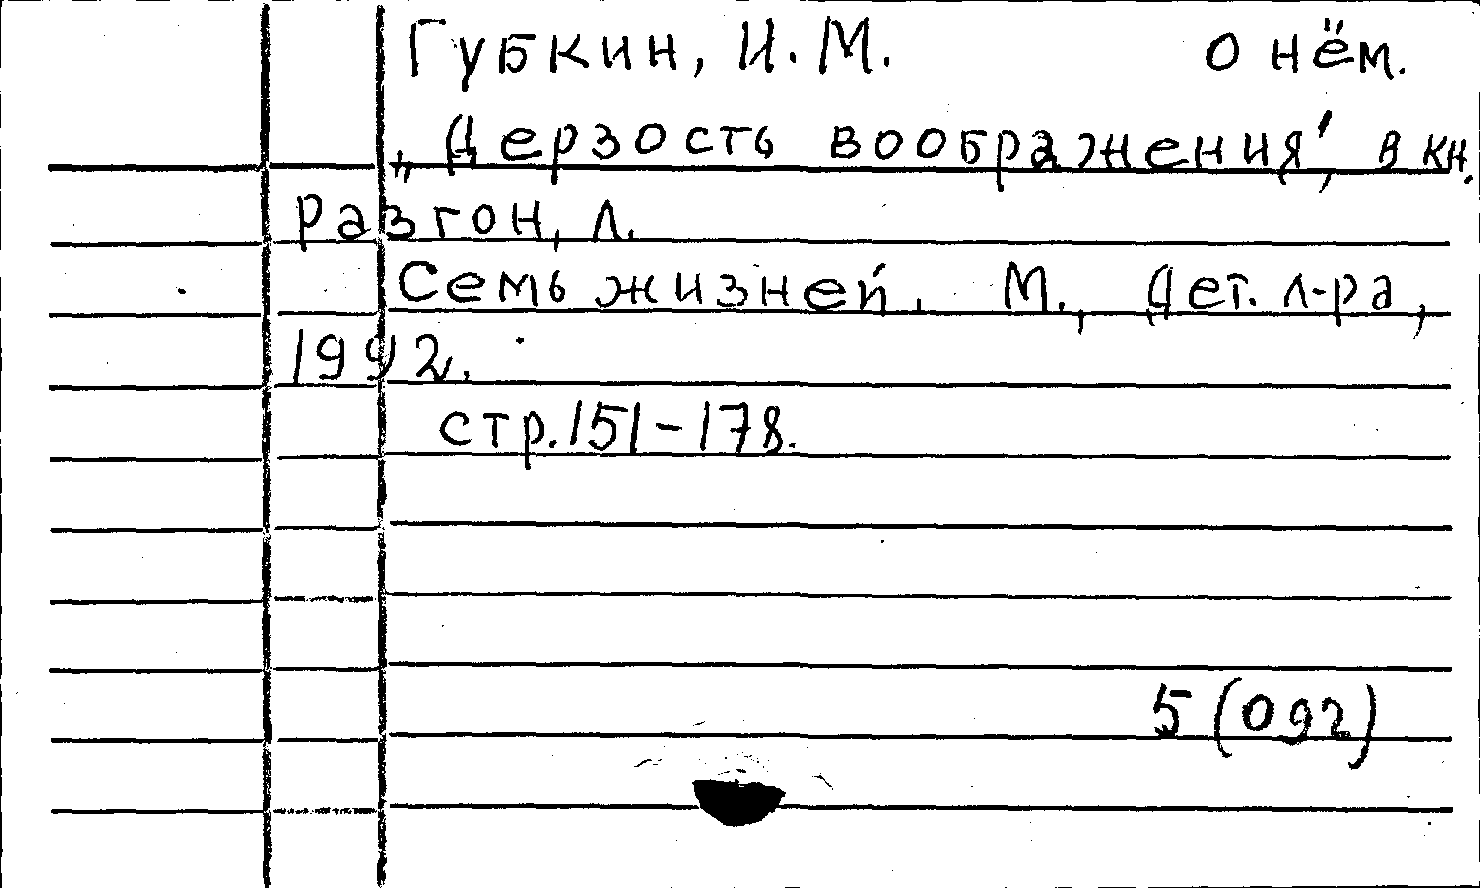 Губкин, И.М. о нём.
„Дерзость воображения", в кн.
Разгон, Л.
Семь жизней. М., Дет. л-ра,
1992.
стр. 151-178.
5(092)